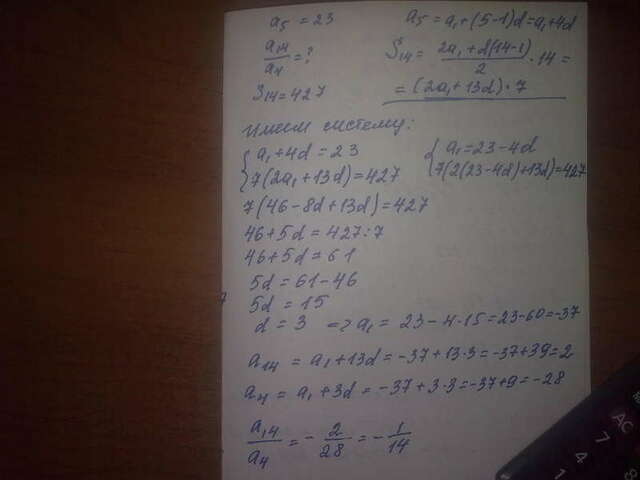 a₅ = 23
a₅ = a₁ + (5-1)d = a₁ + 4d
a₁₄/a₄ = ?
S₁₄ = (2a₁ + d(14-1))/2 · 14 =
S₁₄ = 427
= (2a₁ + 13d) · 7
имеем систему:
{ a₁ + 4d = 23
{ a₁ = 23 - 4d
7(2a₁ + 13d) = 427
7(2(23 - 4d) + 13d) = 427
7(46 - 8d + 13d) = 427
46 + 5d = 427 : 7
46 + 5d = 61
5d = 61 - 46
5d = 15
d = 3 => a₁ = 23 - 4 · 15 = 23 - 60 = -37
a₁₄ = a₁ + 13d = -37 + 13·3 = -37 + 39 = 2
a₄ = a₁ + 3d = -37 + 3·3 = -37 + 9 = -28
a₁₄/a₄ = - 2/28 = - 1/14
AC
7
4
1